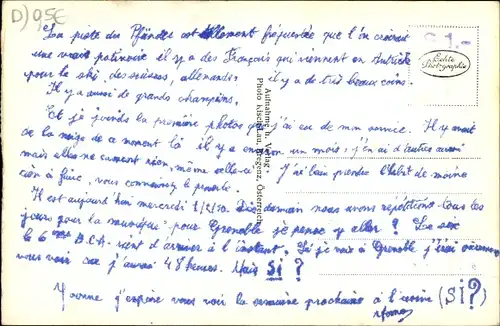 D) 0,5€
S 1.-
Echte Photographie
Aufnahme u. Verlag
Photo Bregenz, Österreich
La piste du Pfänder est tellement fréquentée que l'on croirait
une vraie patinoire il y a des Français qui viennent en Autriche
pour le ski, des suisses, allemands. il y a de très beaux coins.
Il y a aussi de grands champions.
Et je joins la première photos que j'ai eu de mon service. Il y avait
de la neige de a moment là il y a environ un mois; j'en ai d'autre aussi
mais elles ne cament rien, même celle-ci J'ai bien prendre l'habit de moine
vous connaissez le proverbe.
Il est aujourd'hui mercredi 1/2/50. Dès demain nous avons répétitions tous les
jours pour la musique pour Grenoble je pense y aller? Le six
le 6ème B.C.A. vient d'arriver à l'instant. Si je vais à Grenoble j'irai
vous voir car j'aurai 48 heures. Mais SI?
Yvonne j'espère vous voir la semaine prochaine à l'usine (SI?)